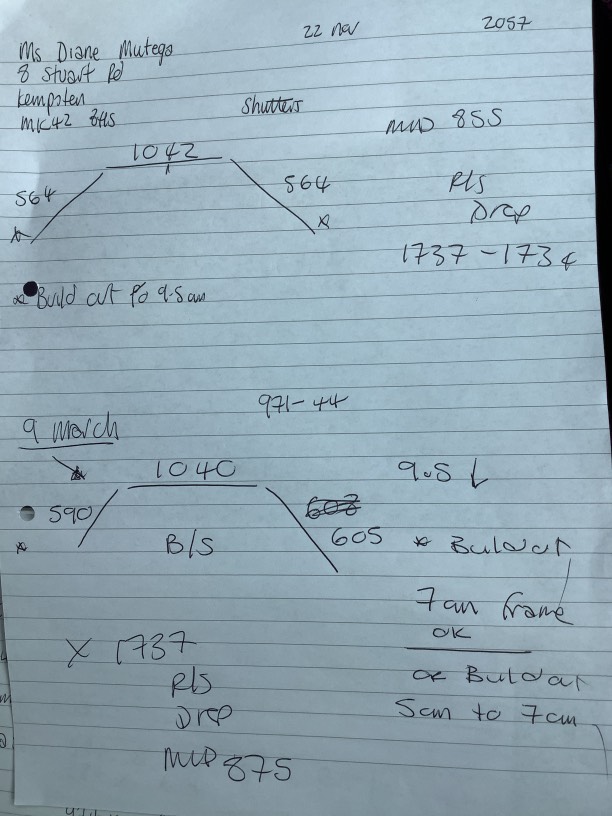 22 Nov 2057
Ms Diane Mutego
8 Stuart Rd
Kempsten
MK42 8HS
Shutters
MID 855
1042
564
564
Rls
Drop
1737 - 1734
* Build out to 9.5 cm
971-44
9 March
1040
9.5 ↓
590
605
B/S
* Buildout
7cm frame
OK
X 1737
Rls
or Buildout
Drop
5cm to 7cm
MID 875